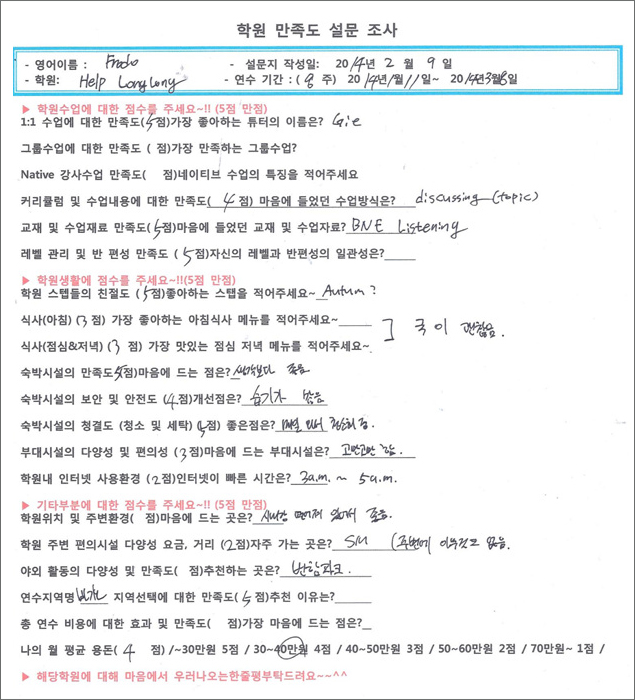 학원 만족도 설문 조사
- 영어이름 : Frodo - 설문지 작성일: 2014년 2 월 9 일
- 학원: Help Longlong - 연수 기간 : (8 주) 2014년/1월/11일~ 2014년3월8일
▶ 학원수업에 대한 점수를 주세요~!! (5점 만점)
1:1 수업에 대한 만족도(5점)가장 좋아하는 튜터의 이름은? Gie
그룹수업에 대한 만족도 ( 점)가장 만족하는 그룹수업?
Native 강사수업 만족도( 점)네이티브 수업의 특징을 적어주세요
커리큘럼 및 수업내용에 대한 만족도( 4 점) 마음에 들었던 수업방식은? discussing (topic)
교재 및 수업재료 만족도(5점)마음에 들었던 교재 및 수업자료? BNE Listening
레벨 관리 및 반 편성 만족도 ( 5점)자신의 레벨과 반편성의 일관성은?
▶ 학원생활에 점수를 주세요~!!(5점 만점)
학원 스텝들의 친절도 (5점)좋아하는 스탭을 적어주세요~ Autum ?
식사(아침) (3 점) 가장 좋아하는 아침식사 메뉴를 적어주세요~ ] 국이 괜찮음.
식사(점심&저녁) (3 점) 가장 맛있는 점심 저녁 메뉴를 적어주세요~
숙박시설의 만족도(점)마음에 드는 점은? 생각보다 좋음
숙박시설의 보안 및 안전도 (4점)개선점은? 습기가 많음
숙박시설의 청결도 (청소 및 세탁) (점) 좋은점은? 매일 와서
부대시설의 다양성 및 편의성 (3점)마음에 드는 부대시설은? 고만고만
학원내 인터넷 사용환경 (2점)인터넷이 빠른 시간은? 3a.m. ~ 5a.m.
▶ 기타부분에 대한 점수를 주세요~!! (5점 만점)
학원위치 및 주변환경( 점)마음에 드는 곳은? 시내랑 떨어져 있어서 좋음.
학원 주변 편의시설 다양성 요금, 거리 (2점)자주 가는 곳은? SM (주변에 아무것도 없음.
야외 활동의 다양성 및 만족도( 점)추천하는 곳은? 번햄파크.
연수지역명 지역선택에 대한 만족도(5점)추천 이유는?
총 연수 비용에 대한 효과 및 만족도( 점)가장 마음에 드는 점은?
나의 월 평균 용돈( 4 점) /~30만원 5점 / 30~40만원 4점 / 40~50만원 3점 / 50~60만원 2점 / 70만원~ 1점 /
▶ 해당학원에 대해 마음에서 우러나오는한줄평부탁드려요~~^^